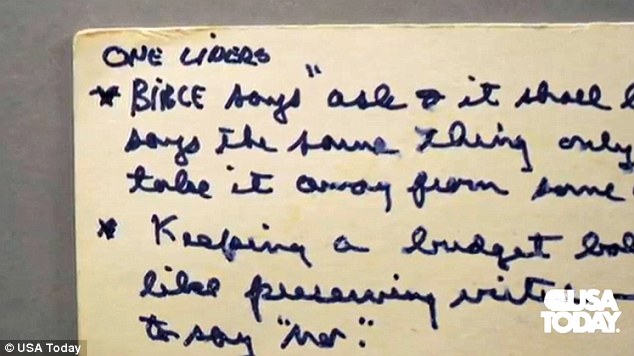 ONE LINERS
* BIBLE says "ask & it shall
says the same thing only
take it away from some
* Keeping a budget
like preserving virtue —
to say "no".
USA
TODAY.
© USA Today